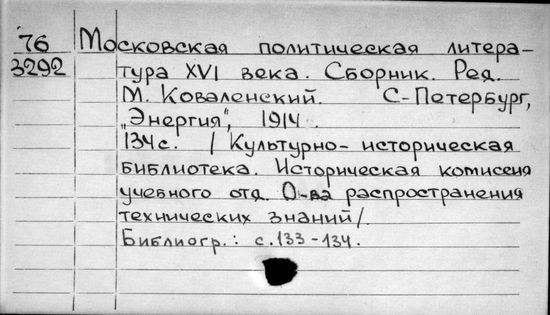 76 Московская политическая литера-
3292 тура XVI века. Сборник. Ред.
М. Коваленский. С-Петербург,
„Энергия", 1914.
134 с. / Культурно-историческая
библиотека. Историческая комиссия
учебного отд. О-ва распространения
технических знаний/.
Библиогр.: с. 133-134.